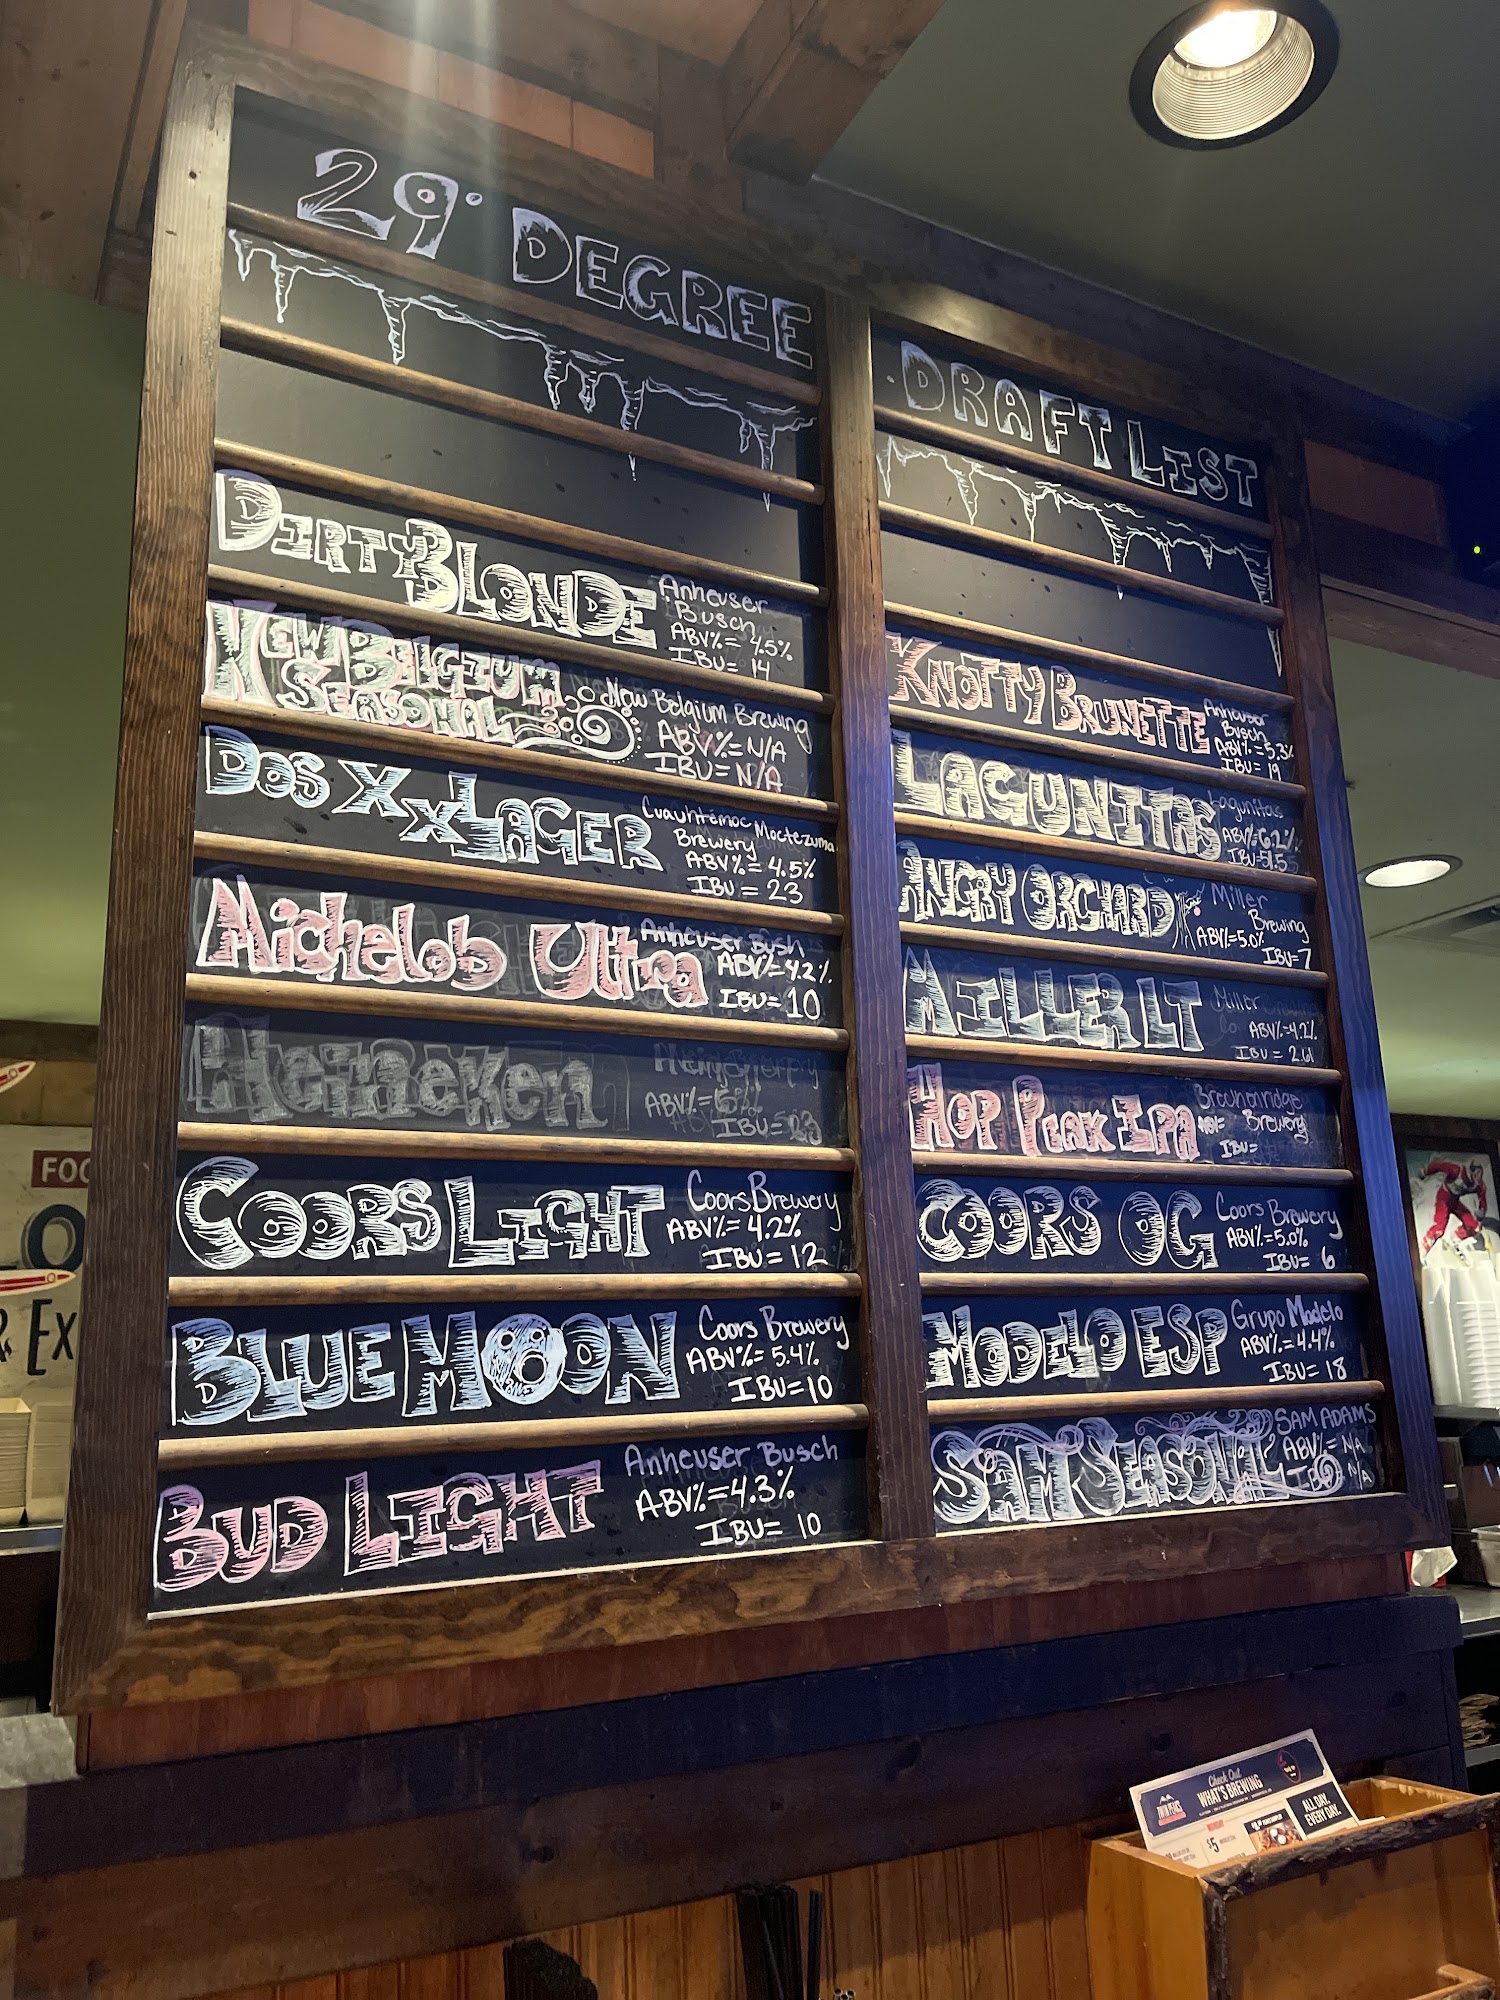 29° DEGREE
DIRTY BLONDE
Anheuser
Busch
ABV%= 4.5%
IBU= 14
NEW BELGIUM
SEASONAL
New Belgium Brewing
ABV%= N/A
IBU= N/A
DOS XX LAGER
Cuauhtémoc Moctezuma
Brewery
ABV%= 4.5%
IBU= 23
Michelob Ultra
Anheuser Bush
ABV%=4.2%
IBU= 10
Heineken
ABV%=5%
IBU=23
COORS LIGHT
Coors Brewery
ABV%= 4.2%
IBU= 12
BLUE MOON
Coors Brewery
ABV%= 5.4%
IBU=10
BUD LIGHT
Anheuser Busch
ABV%=4.3%
IBU= 10
DRAFT LIST
KNOTTY BRUNETTE
Anheuser
Busch
ABV%=5.3%
IBU= 19
LAGUNITAS
Lagunitas
ABV%=6.2%
IBU=51.5
ANGRY ORCHARD
Miller
Brewing
ABV%=5.0%
IBU=7
MILLER LT
Miller
ABV%=4.2%
IBU=
HOP PEAK IPA
Brewery
ABV=
IBU=
COORS OG
Coors Brewery
ABV%=5.0%
IBU= 6
MODELO ESP
Grupo Modelo
ABV%= 4.4%
IBU= 18
SAM SEASONAL
SAM ADAMS
ABV%= N/A
N/A
FOO
& EX
Check Out
WHAT'S BREWING
TWIN PEAKS
ALL DAY,
EVERY DAY.
$5